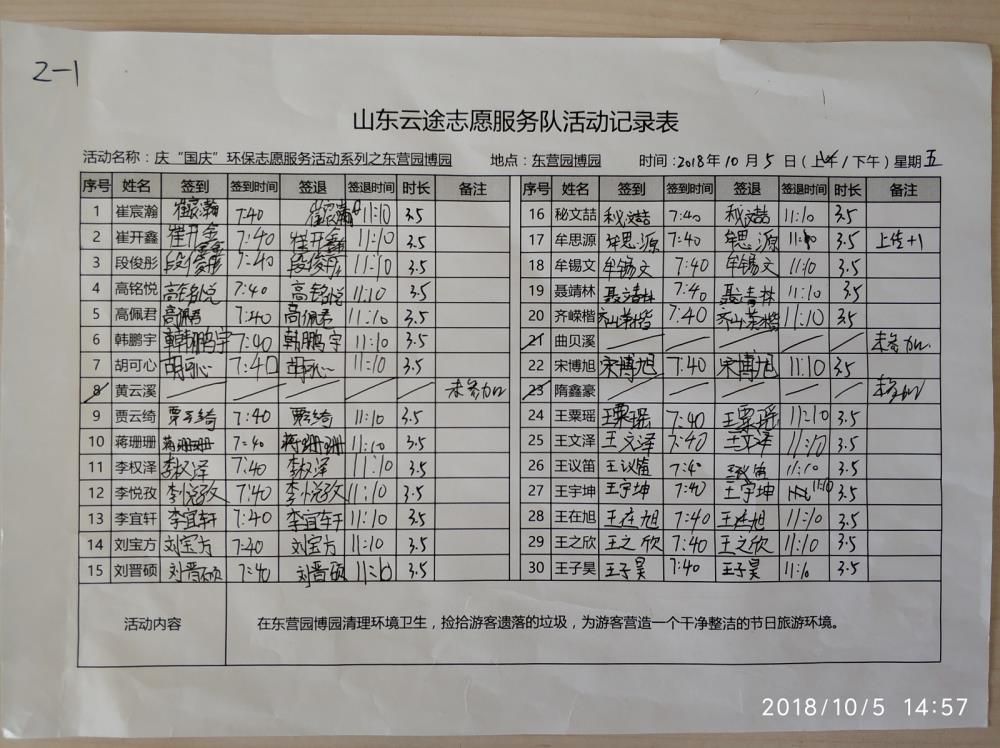 2-1
山东云途志愿服务队活动记录表
活动名称：庆“国庆”环保志愿服务活动系列之东营园博园 地点：东营园博园 时间：2018年10月5日（上午/下午）星期五
序号 姓名 签到 签到时间 签退 签退时间 时长 备注 序号 姓名 签到 签到时间 签退 签退时间 时长 备注
1 崔宸瀚 崔宸瀚 7:40 崔宸瀚 11:10 3.5 16 秘文喆 秘文喆 7:40 秘文喆 11:10 3.5
2 崔开鑫 崔开鑫 7:40 崔开鑫 11:10 3.5 17 牟思源 牟思源 7:40 牟思源 11:10 3.5 上传+1
3 段俊彤 段俊彤 7:40 段俊彤 11:10 3.5 18 牟锡文 牟锡文 7:40 牟锡文 11:10 3.5
4 高铭悦 高铭悦 7:40 高铭悦 11:10 3.5 19 聂靖林 聂靖林 7:40 聂靖林 11:10 3.5
5 高佩君 高佩君 7:40 高佩君 11:10 3.5 20 齐嵘楷 7:40 11:10 3.5
6 韩鹏宇 韩鹏宇 7:40 韩鹏宇 11:10 3.5 21 曲贝溪 未参加
7 胡可心 胡可心 7:40 胡可心 11:10 3.5 22 宋博旭 宋博旭 7:40 宋博旭 11:10 3.5
8 黄云溪 未参加 23 隋鑫豪 未参加
9 贾云绮 贾云绮 7:40 贾云绮 11:10 3.5 24 王粟瑶 王粟瑶 7:40 王粟瑶 11:10 3.5
10 蒋珊珊 蒋珊珊 7:40 蒋珊珊 11:10 3.5 25 王文泽 王文泽 7:40 王文泽 11:10 3.5
11 李权泽 李权泽 7:40 李权泽 11:10 3.5 26 王议笛 王议笛 7:40 王议笛 11:10 3.5
12 李悦孜 李悦孜 7:40 李悦孜 11:10 3.5 27 王宇坤 王宇坤 7:40 王宇坤 11:10 3.5
13 李宜轩 李宜轩 7:40 李宜轩 11:10 3.5 28 王在旭 王在旭 7:40 王在旭 11:10 3.5
14 刘宝方 刘宝方 7:40 刘宝方 11:10 3.5 29 王之欣 王之欣 7:40 王之欣 11:10 3.5
15 刘晋硕 刘晋硕 7:40 刘晋硕 11:10 3.5 30 王子昊 王子昊 7:40 王子昊 11:10 3.5
活动内容 在东营园博园清理环境卫生，捡拾游客遗落的垃圾，为游客营造一个干净整洁的节日旅游环境。
2018/10/5 14:57